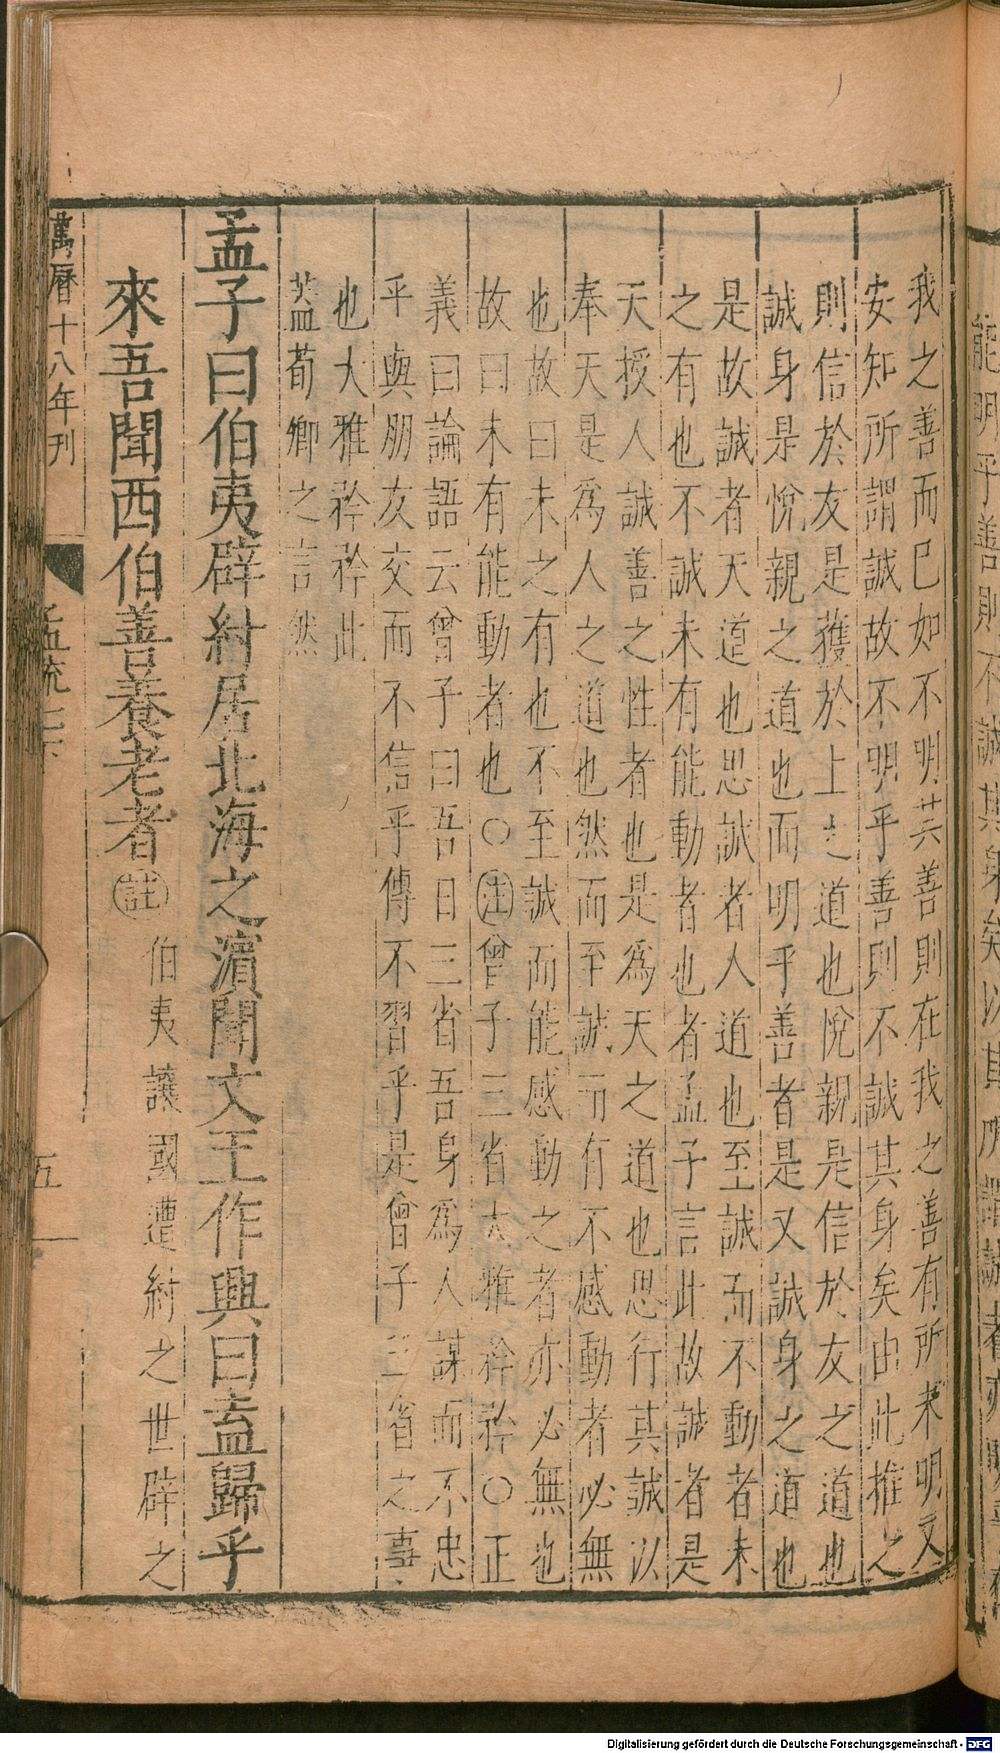 能明乎善則不誠其身矣以其所謂誠者亦
我之善而已如不明其善則在我之善有所未明又
安知所謂誠故不明乎善則不誠其身矣由此推之
則信於友是獲於上之道也悅親是信於友之道也
誠身是悅親之道也而明乎善者是又誠身之道也
是故誠者天道也思誠者人道也至誠而不動者未
之有也不誠未有能動者也者孟子言此故誠者是
天授人誠善之性者也是爲天之道也思行其誠以
奉天是爲人之道也然而至誠而有不感動者必無
也故曰未之有也不至誠而能感動之者亦必無也
故曰未有能動者也○注曾子三省大雅矜矜○正
義曰論語云曾子曰吾日三省吾身爲人謀而不忠
乎與朋友交而不信乎傳不習乎是曾子三省之事
也大雅矜矜此
葢荀卿之言然
孟子曰伯夷辟紂居北海之濱聞文王作興曰盍歸乎
來吾聞西伯善養老者註伯夷讓國遭紂之世辟之
萬曆十八年刊
孟疏七下
五
Digitalisierung gefördert durch die Deutsche Forschungsgemeinschaft - DFG